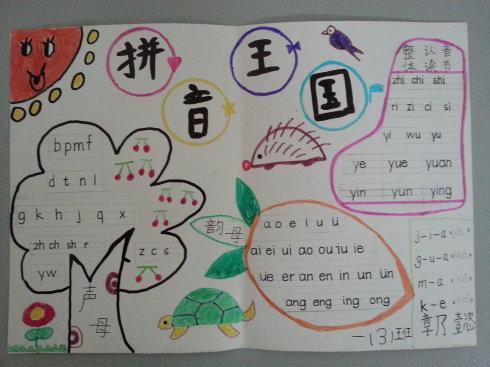 拼音王国
b p m f
d t n l
g k h j q x
zh ch sh r
z c s
y w
声母
整 认 音
体 读 节
zhi chi shi
ri zi ci si
yi wu yu
ye yue yuan
yin yun ying
韵母
a o e i u ü
ai ei ui ao ou iu ie
üe er an en in un ün
ang eng ing ong
j-i-a
g-u-a
m-a
k-e
一(3)班